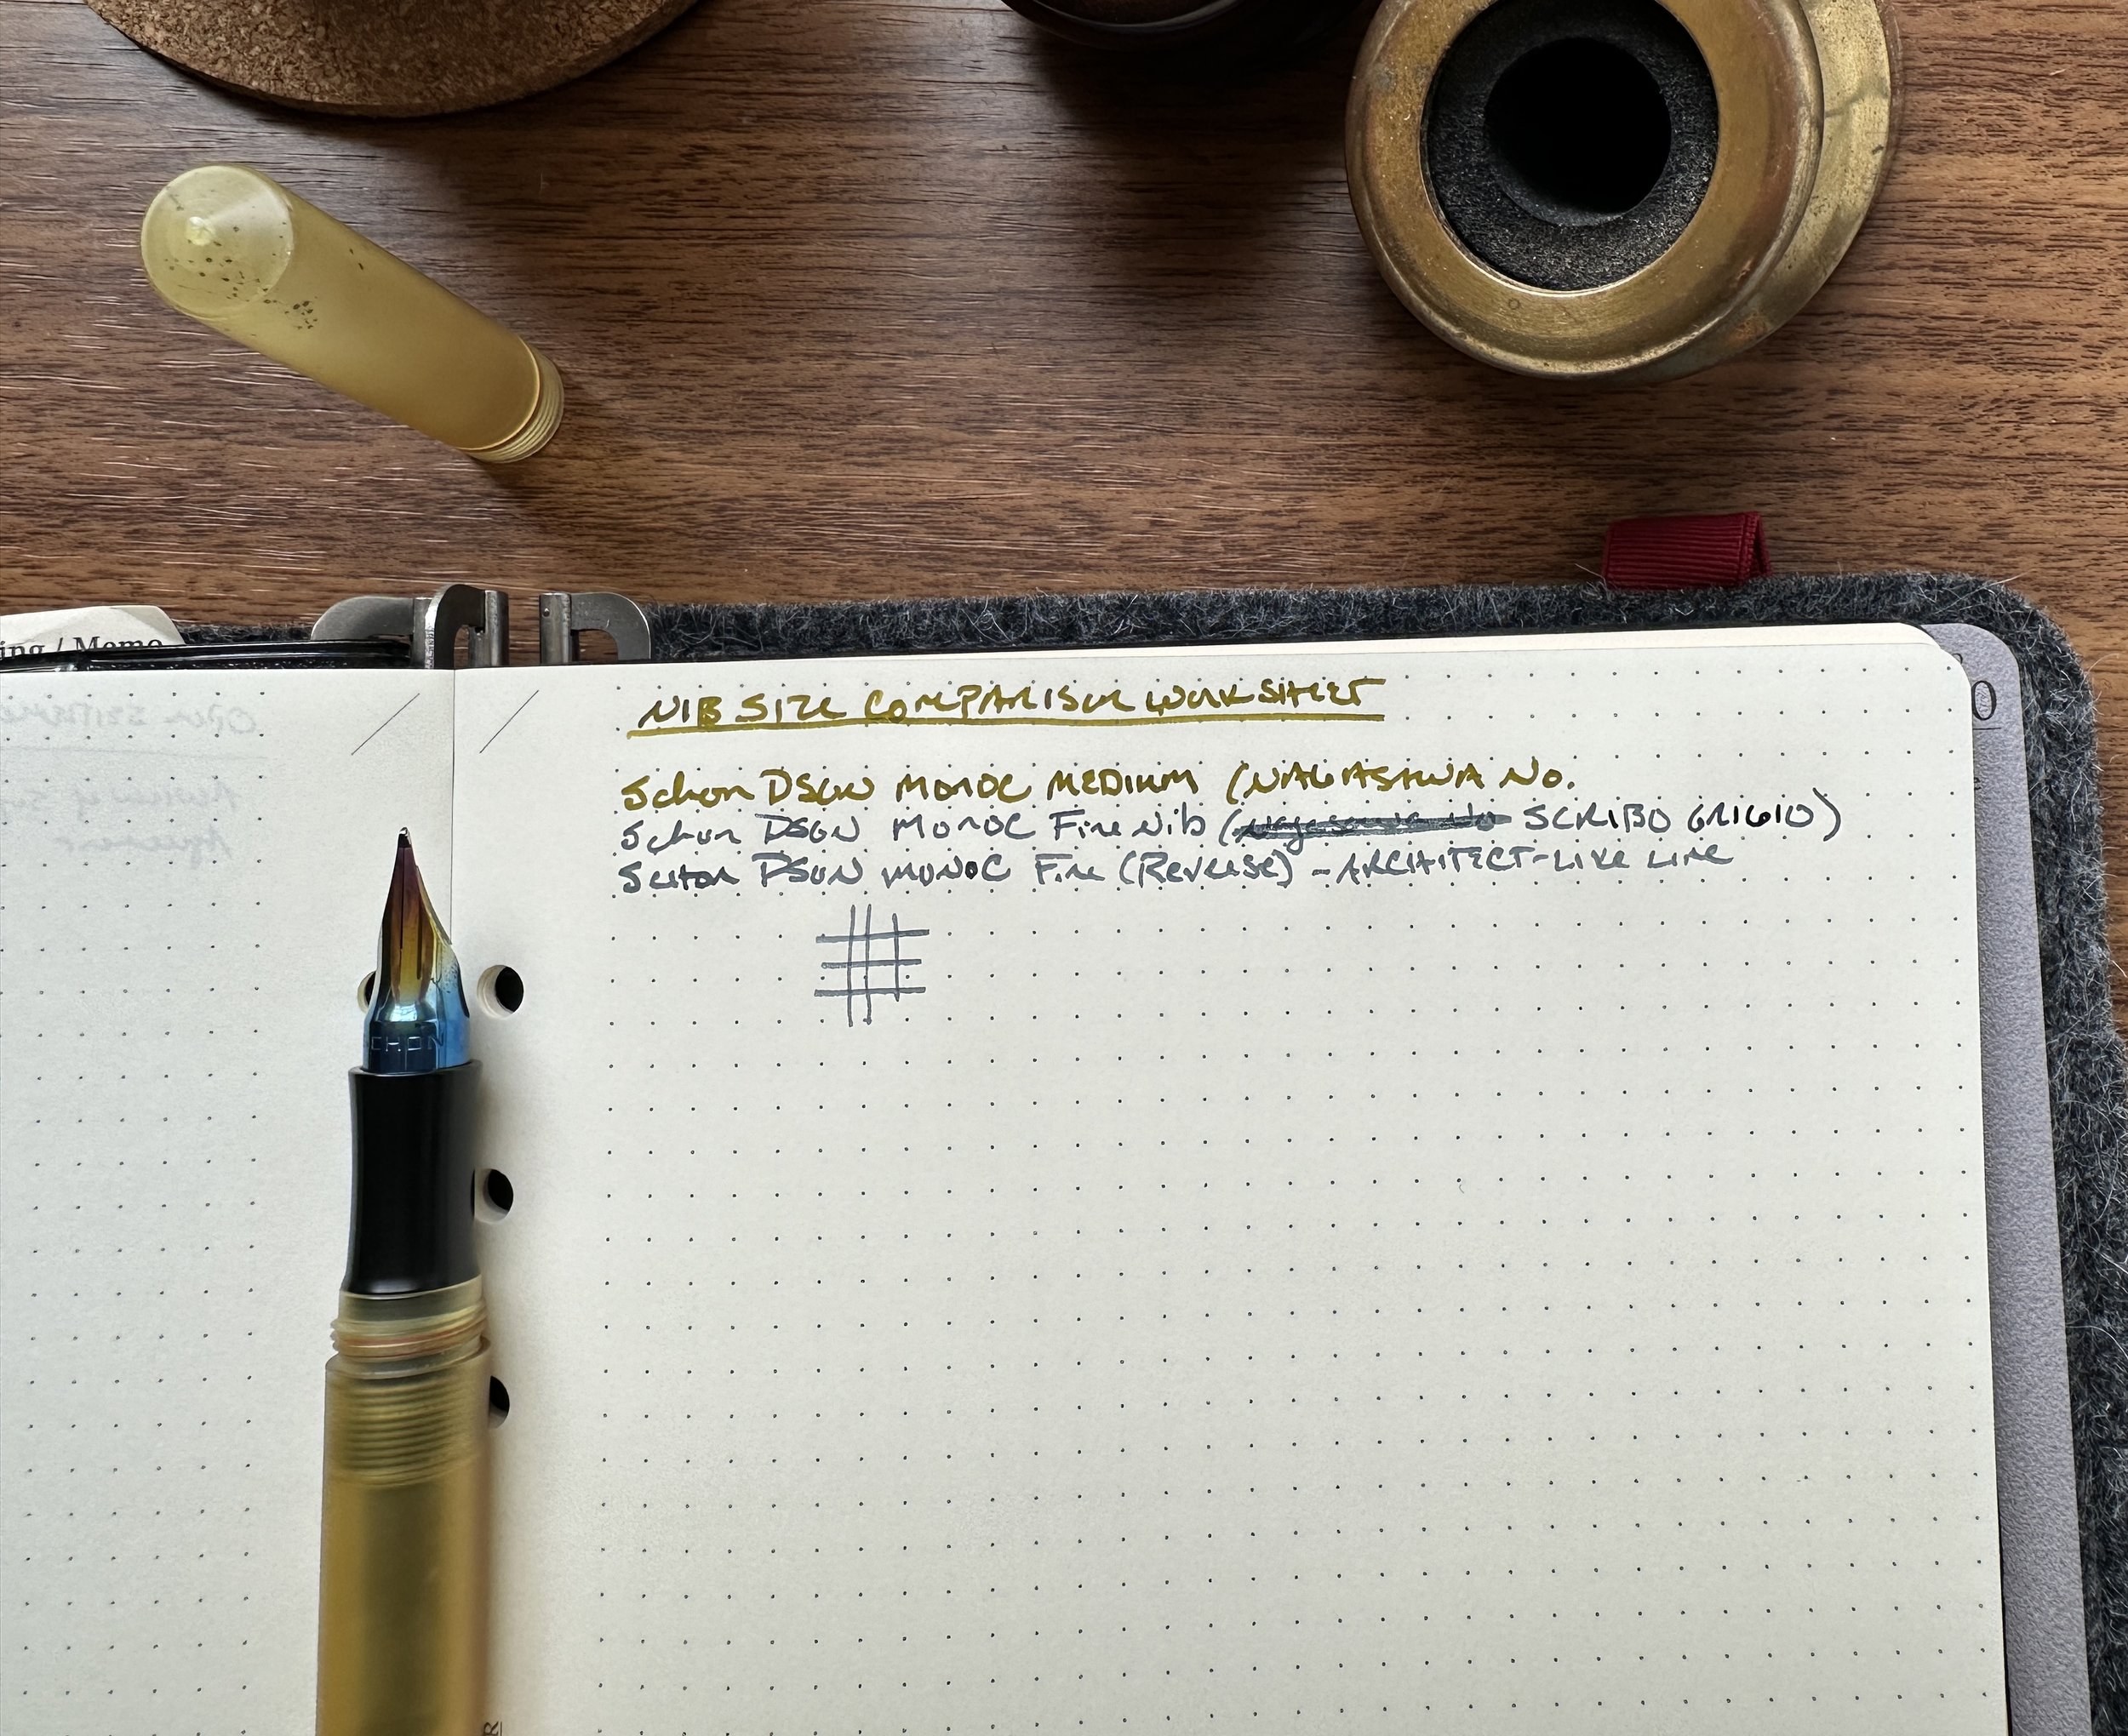 ing / Memo
NIB SIZE COMPARISON WORKSHEET
Schon DSGN MONOC MEDIUM (NAGASAWA No.
Schon DSGN MONOC Fine Nib (Nagasawa No SCRIBO GRIGIO)
Schon DSGN MONOC Fine (Reverse) - ARCHITECT-LIKE LINE
SCHON
0
R